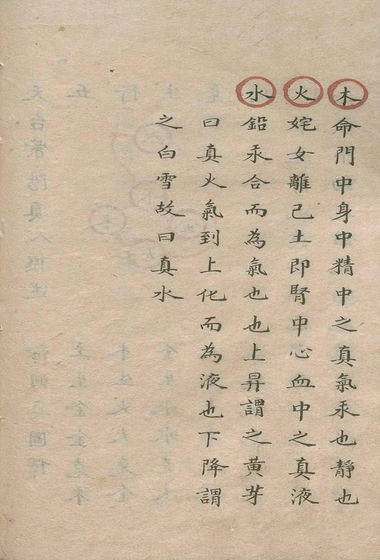 木命門中身中精中之真氣汞也靜也
火姹女離己土即腎中心血中之真液
水鉛汞合而為氣也也上昇謂之黃芽
曰真火氣到上化而為液也下降謂
之白雪故曰真水